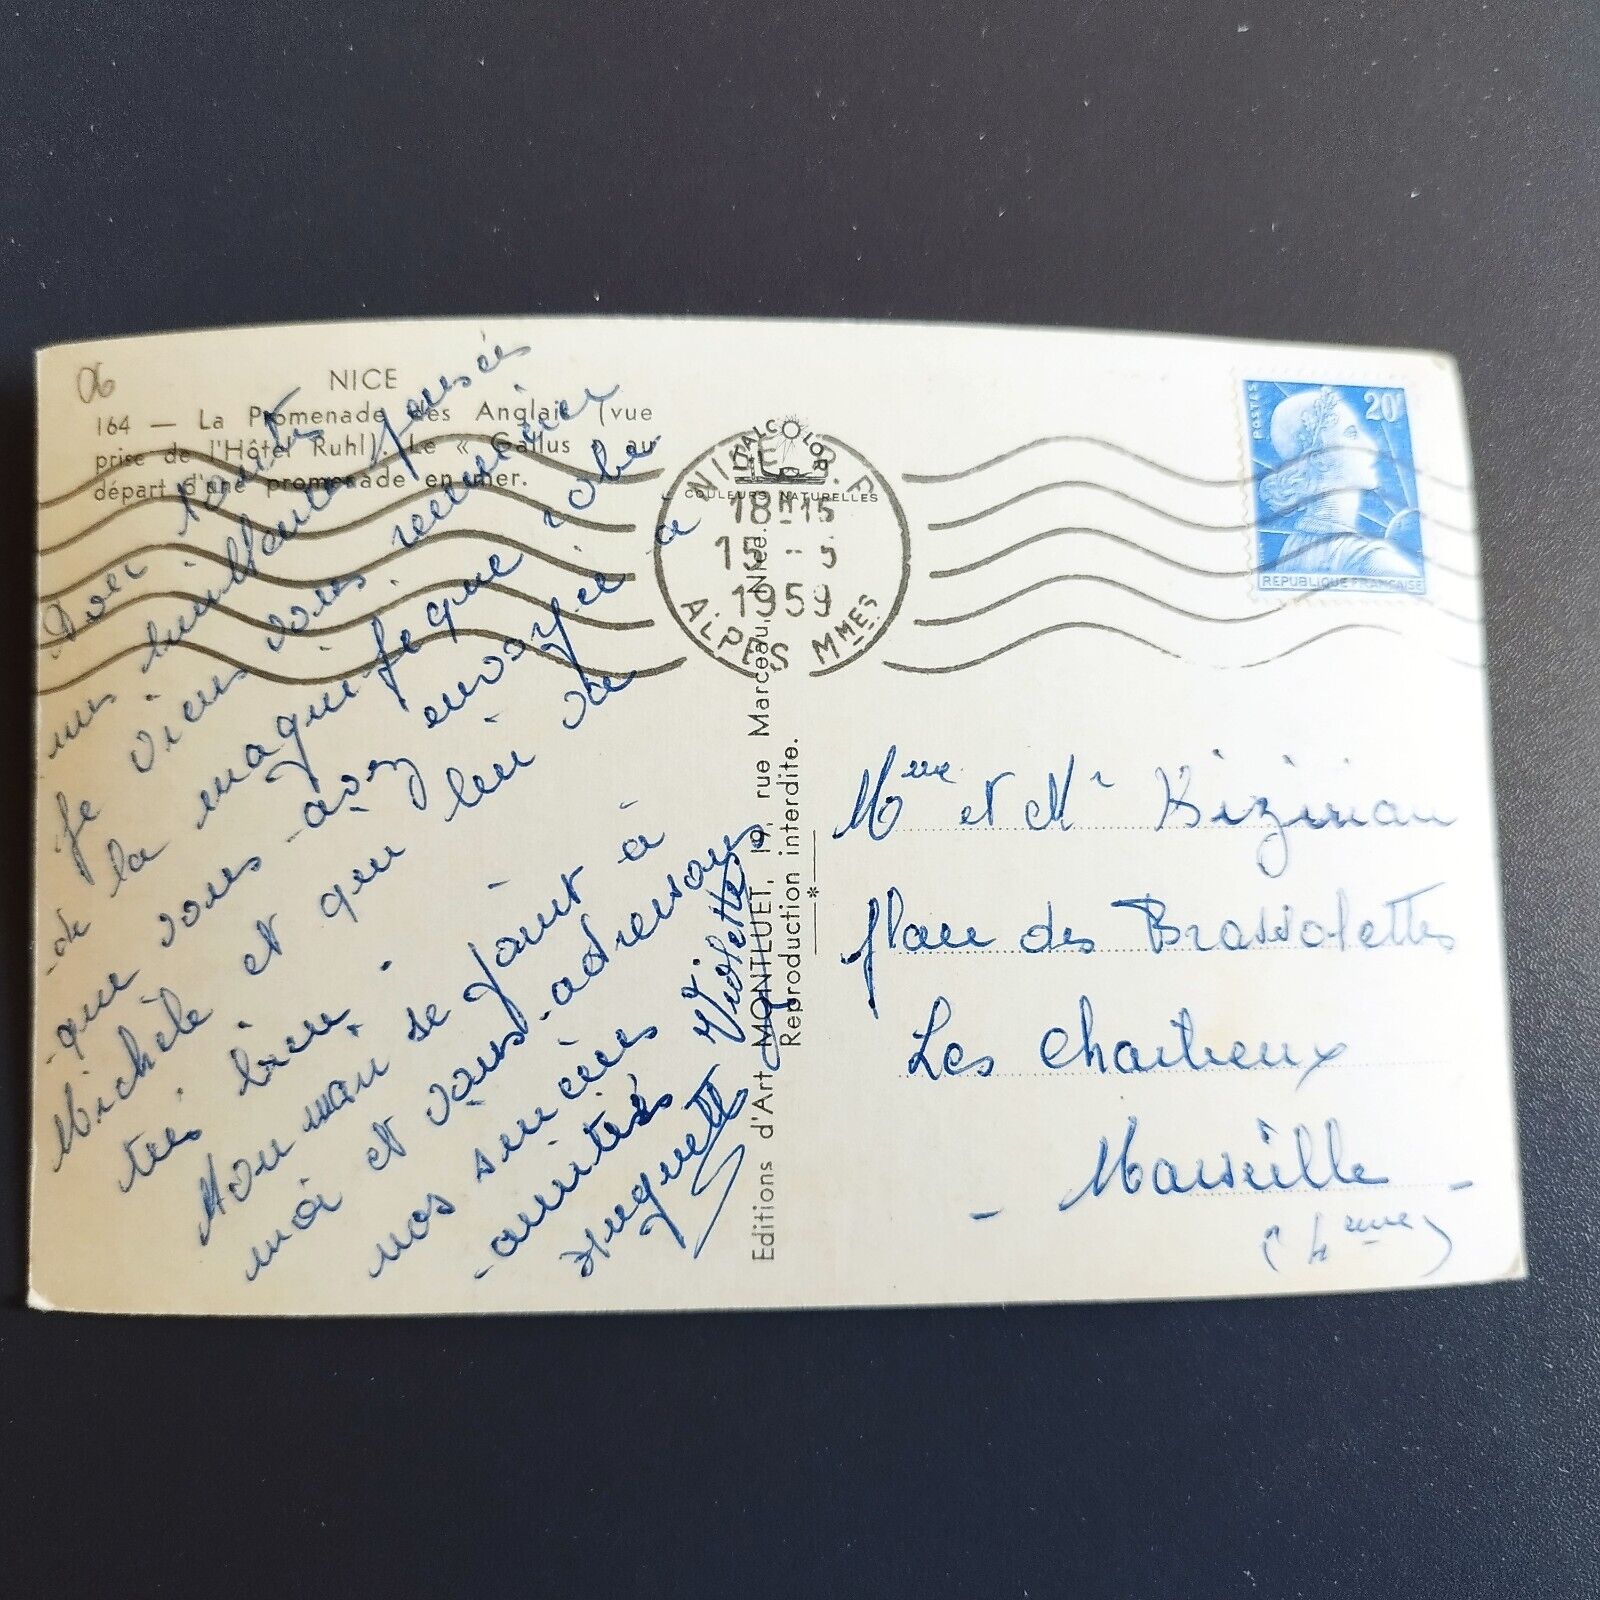 06
NICE
164 — La Promenade des Anglais (vue
prise de l'Hôtel Ruhl). Le « Gallus » au
départ d'une promenade en mer.
Avec toutes
mes meilleures pensées
je viens vous remercier
de la magnifique robe
que vous avez envoyée à
Michèle et qui lui va
très bien.
Maman se joint à
moi et vous adressons
nos sincères
amitiés Violette
Huguette
Editions d'Art MONTLUET, 19, rue Marceau, Nice.
Reproduction interdite.
ITALCOLOR
COULEURS NATURELLES
NICE R.P.
18H15
15 - 5
1959
ALPES MMES
POSTES
20F
REPUBLIQUE FRANÇAISE
Mme et Mr Kizirian
place des Brassolettes
Les Chartreux
- Marseille -
(4eme)